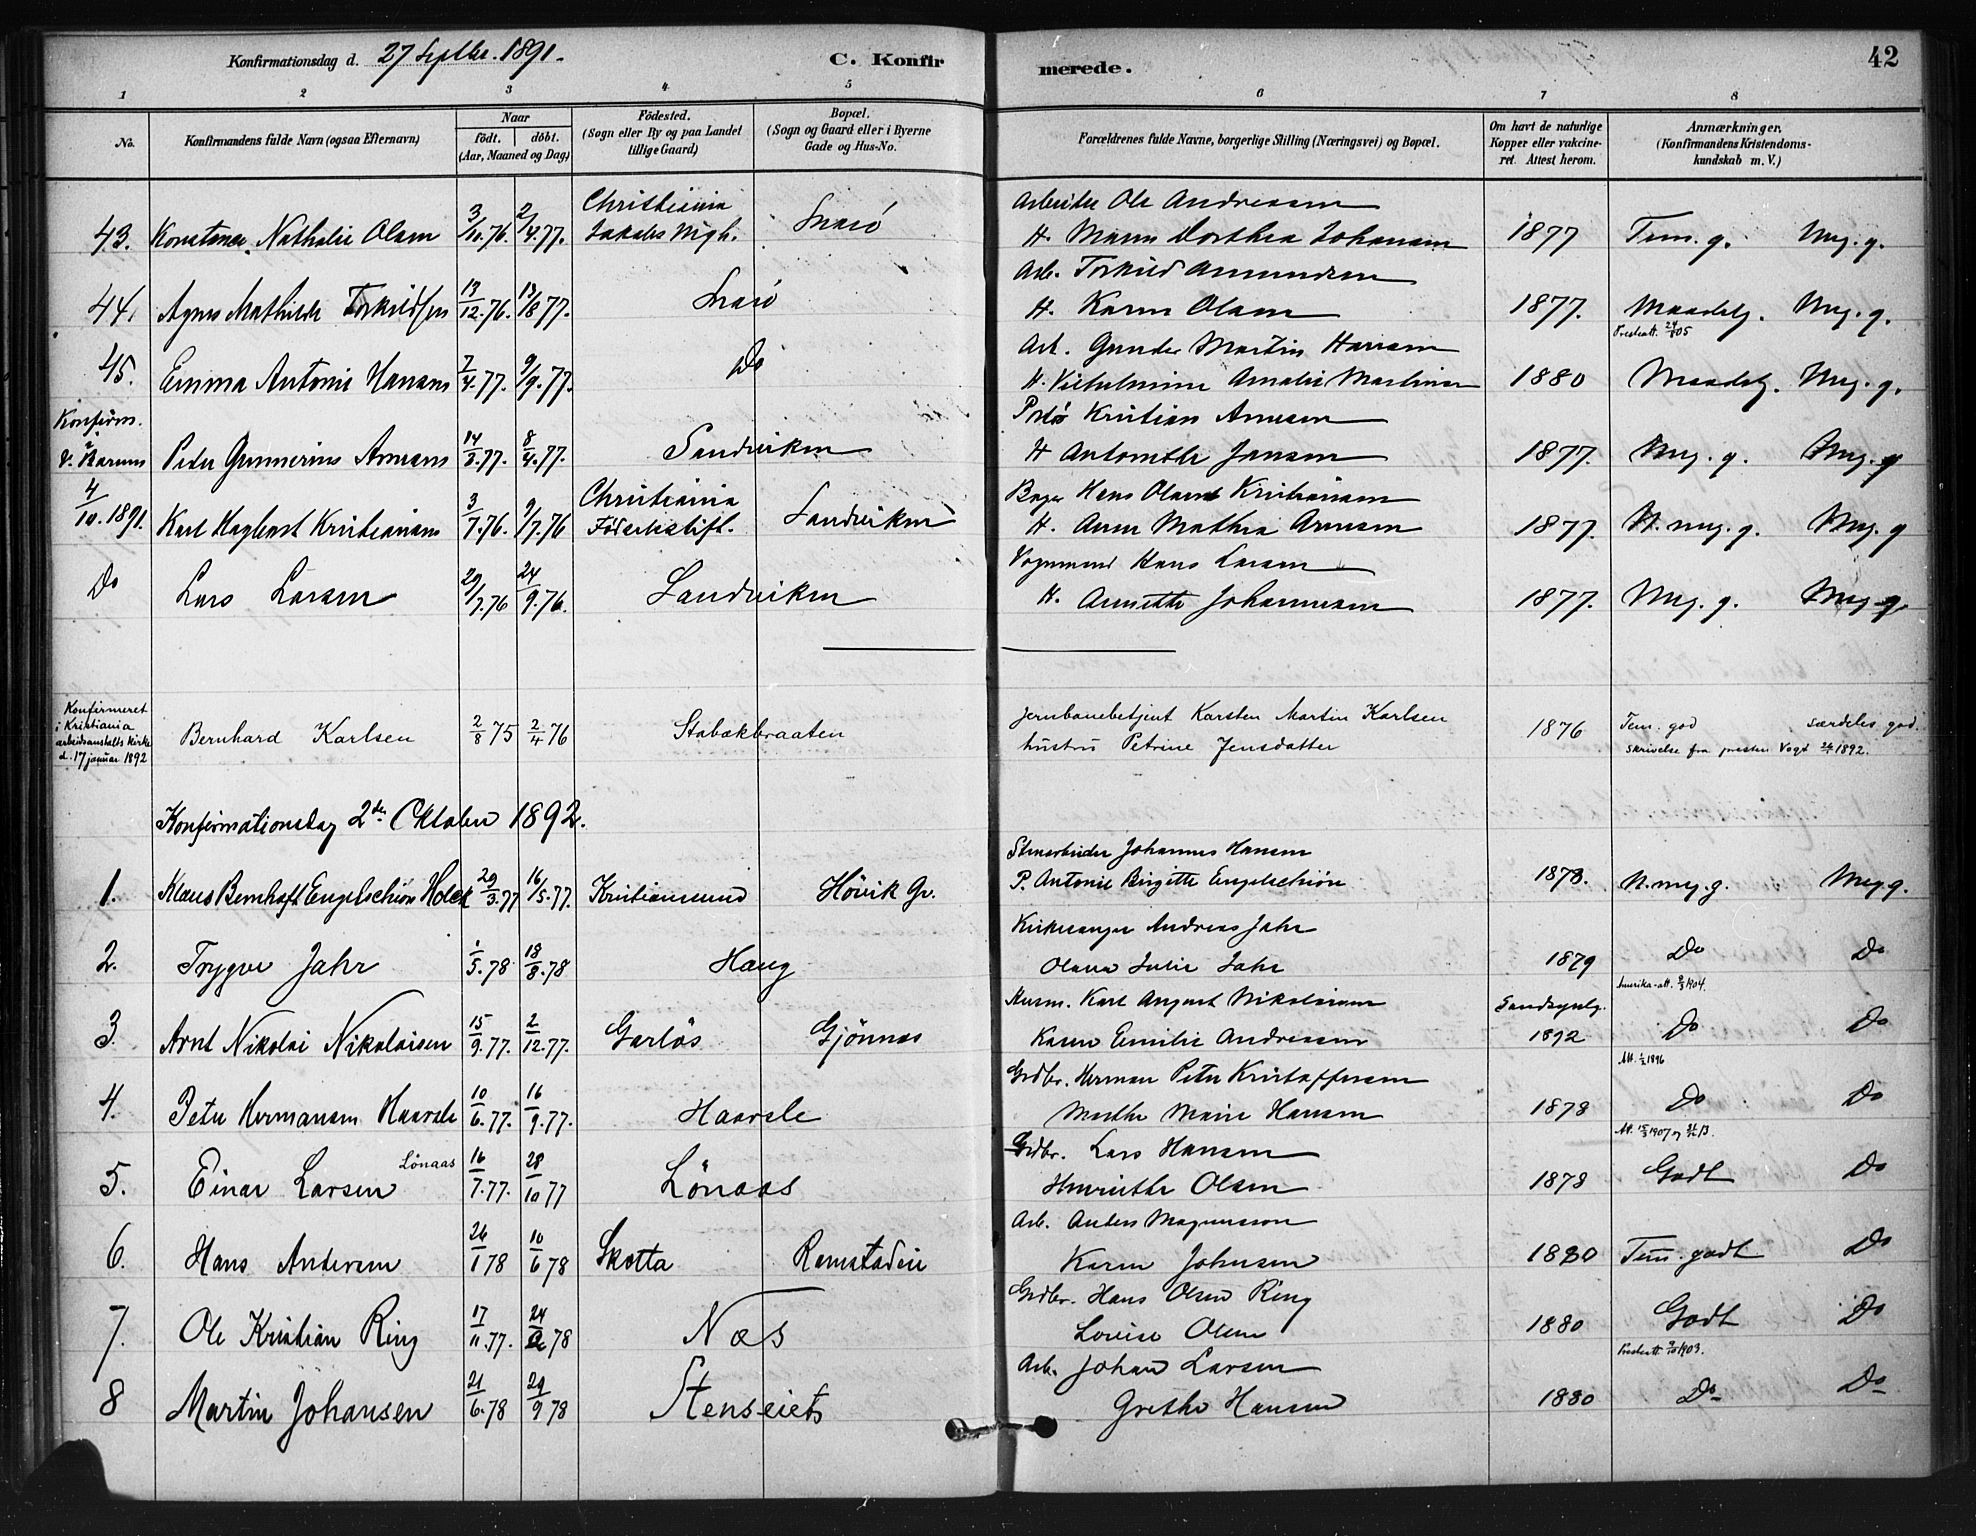 Konfirmationsdag d. 27 Septbr. 1891.
C. Konfirmerede.
42
1 2 3 4 5 6 7 8
No.
Konfirmandens fulde Navn (ogsaa Efternavn)
Naar
født. døbt.
(Aar, Maaned og Dag)
Födested.
(Sogn eller By og paa Landet
tillige Gaard)
Bopæl.
(Sogn og Gaard eller i Byerne
Gade og Hus-No.
Forældrenes fulde Navne, borgerlige Stilling (Næringsvei) og Bopæl.
Om havt de naturlige
Kopper eller vakcine-
ret. Attest herom.
Anmærkninger,
(Konfirmandens Kristendoms-
kundskab m. V.)
Christiania Arbeider Ole Andreasen
43. Nathalie Olsen 3/10.76. 2/4.77. Jakobs Snarö H. Dorthea Johansen 1877 Tem. g. Mg. g.
Arb. Torkild Amundsen
44. Agnes Mathilde Torkildsen 13/12.76. 13/18 77. Snarö H. Karen Olsen 1877. Maadelg. Mg. g.
Arb. Gunder Martin Hansen
45. Emma Antonie Hansen 7/4.77. 9/9.77. Do H. Vilhelmine Amalie 1880 Maadelg. Mg. g.
Konfirm. Kristian Arnesen
i V. Bærum Peder Gunnerius Arnesen 14/3.77. 8/4.77. Sandviken H Jansen 1877. Mg. g. Mg. g
4/10.1891. Christiania Hans Kristiansen
Karl Kristiansen 3/7.76. 9/7.76 Födselsstift. Sandviken H. Anne Mathea Arnesen 1877. N. mg. g. Mg. g
Vognmand Hans Larsen
Do Lars Larsen 29/7.76 24/9.76. Sandviken H. Annette Johannesen 1877. Mg. g. Mg. g.
Konfirmeret
i Kristiania
arbeidsanstalts kirke
d. 17 januar 1892
Bernhard Karlsen 2/8 75 2/4 76 Stabækbraaten
Jernbanebetjent Karsten Martin Karlsen
hustru Petrine Jensdatter
1876 Tem. god særdeles god.
skrivelse fra presten Vogt 1892.
Konfirmationsdag 2den Oktober 1892.
Stenarbeider Johannes Hansen
1. Klaus Bernhoft Engelschiøn Holck 29/3.77 16/5.77. Kristiansund Hövik Gr. P. Antonie Birgitte Engelschiön 1878. N. mg. g. Mg. g.
Kirkesanger Andreas Jahr
2. Trygve Jahr 1/5.78 18/8.78 Haug Julie Jahr 1879 Do Do
Amerika-att. 1904.
Karl August Nikolaisen Sandsynlg.
3. Arnt Nikolai Nikolaisen 15/9.77. 2/12.77. Garlös Gjönnes Karen Emilie Andresen 1892 Do Do
Att. 1896
Grdbr. Herman Peter Kristoffersen
4. Peter Hermansen Haarsle 10/6.77. 16/9.77. Haarsle Marthe Marie Hansen 1878 Do Do
Att. 1907 og 13.
Grdbr. Lars Hansen
5. Einar Larsen Lönaas 16/7.77. 28/10 77 Lönaas Henriette Olsen 1878 Godt Do
Arb. Anders Magnusson
6. Hans Andersen 26/1 78 10/6 78 Skotta Ramstadeie Karen Johnsen 1880 Tem. godt Do
Grdbr. Hans Olsen Ring
7. Ole Kristian Ring 17/11.77. 24/2 78 Næs Lovise Olsen 1880 Godt Do
Presteatt. 1903.
Arb. Johan Larsen
8 Martin Johansen 21/6.78 29/9 78 Stenseiets Grethe Hansen 1880 Do Do